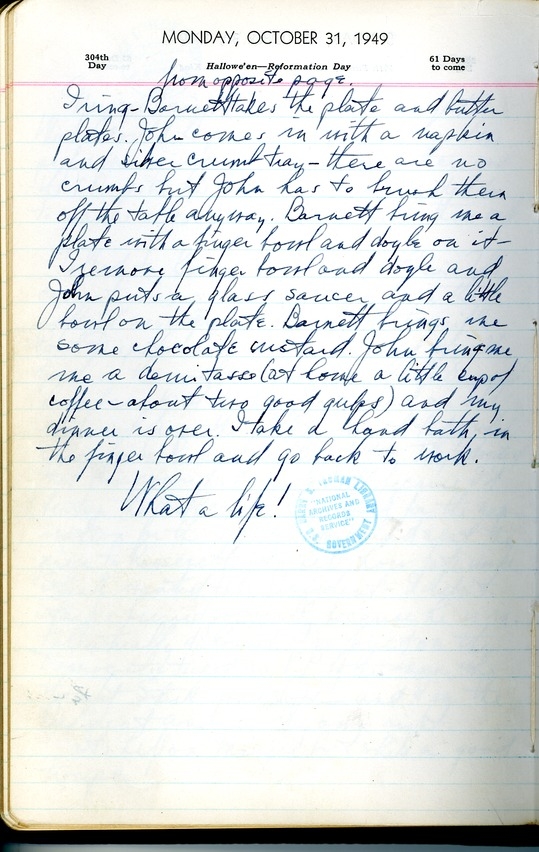 MONDAY, OCTOBER 31, 1949
304th Day
Hallowe'en—Reformation Day
61 Days to come
from opposite page.
I ring - Barnett takes the plate and butter
plates. John comes in with a napkin
and silver crumb tray - there are no
crumbs but John has to brush them
off the table anyway. Barnett bring me a
plate with a finger bowl and doyle on it -
I remove finger bowl and doyle and
John puts a glass saucer and a little
bowl on the plate. Barnett brings me
some chocolate custard. John brings me
me a demitasse (at home a little cup of
coffee - about two good gulps) and my
dinner is over. I take a hand bath in
the finger bowl and go back to work.
What a life!
HARRY S. TRUMAN LIBRARY
"NATIONAL
ARCHIVES AND
RECORDS
SERVICE"
U.S. GOVERNMENT